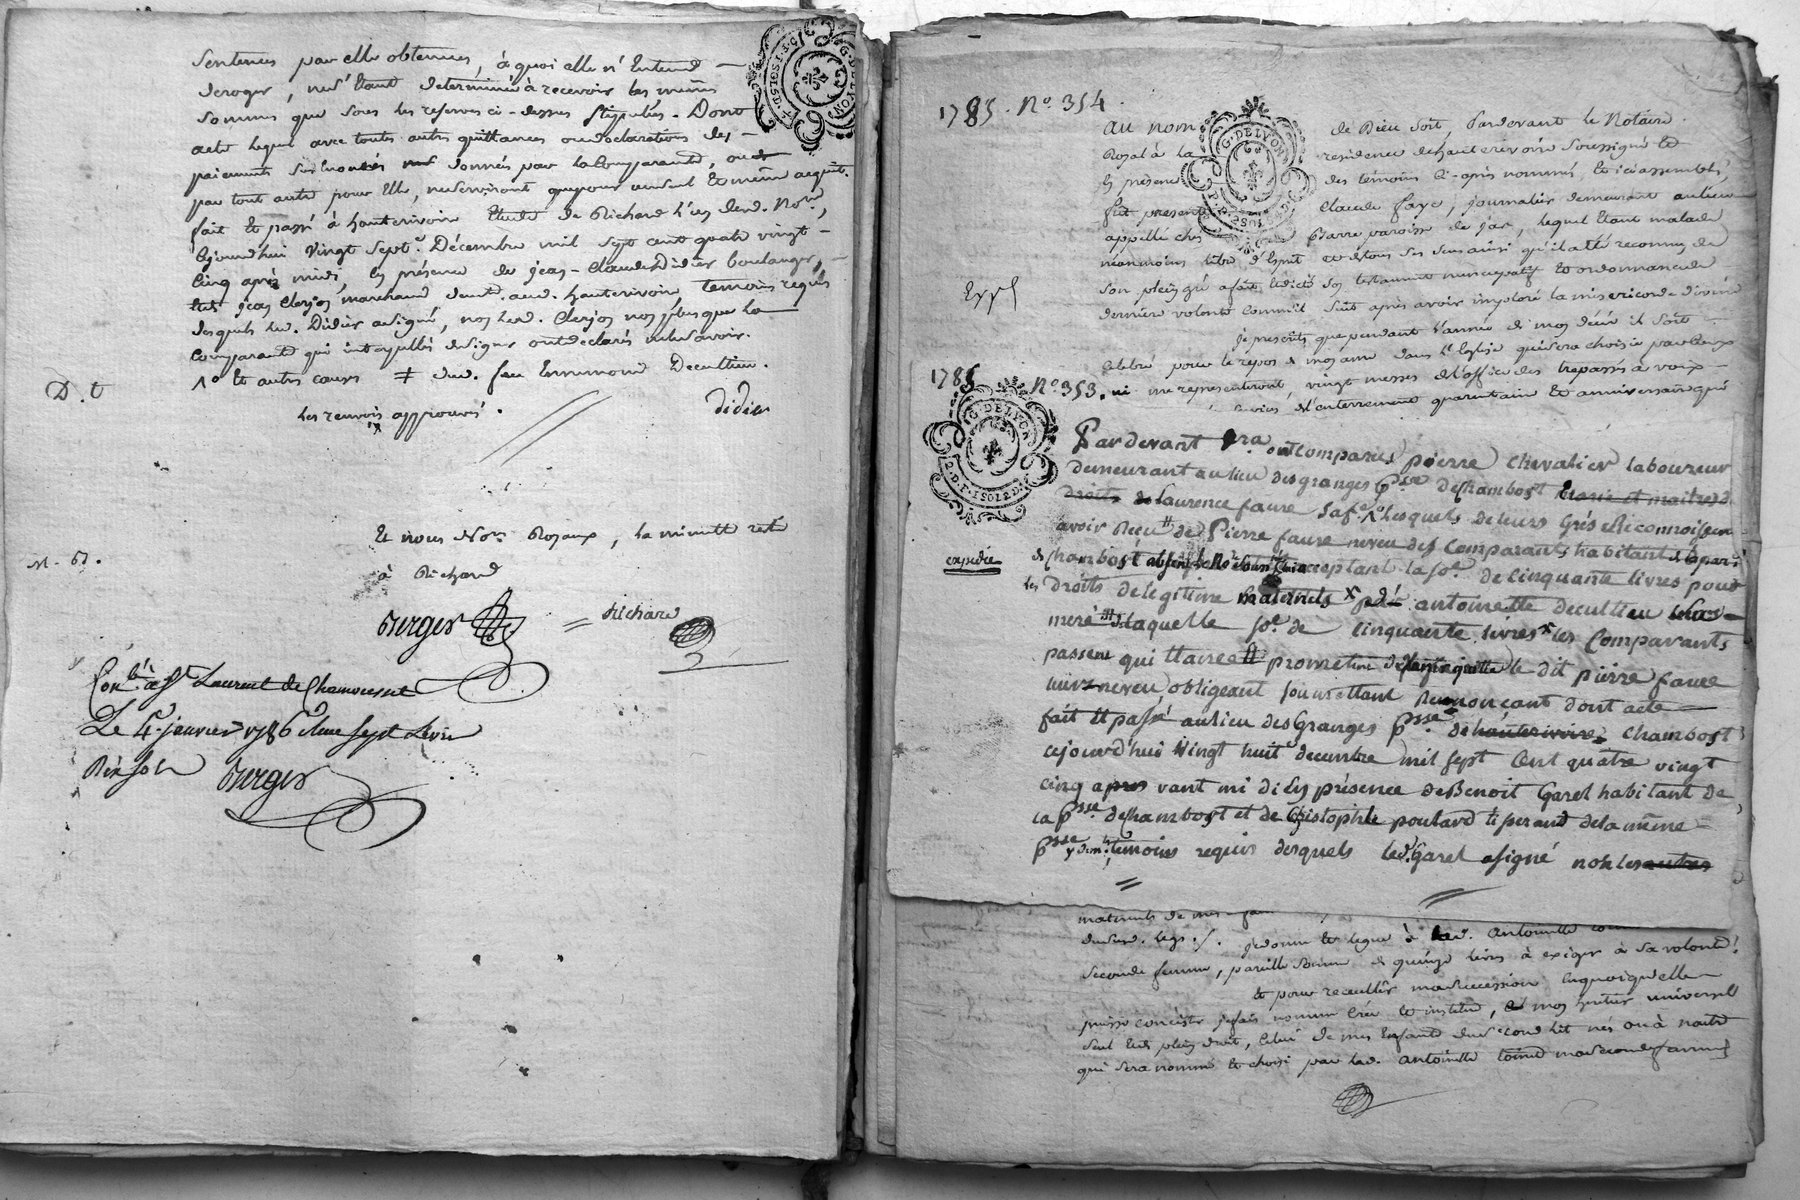 Sentences par elle obtenues, à quoi elle n'Entend
deroger, nes'étant determinée à recevoir les mêmes
Sommes que sous les reserves ci-dessus Stipulées. Dont
acte lequel avec toutes autres quittances ou declarations de
paiements données par la Comparante, ou
par tout autre pour Elle, ne serviront que pour un seul Et même acquit.
fait Et passé à hauterivoire Etude de Richard L'un desd. No.res
Cejourdhui Vingt Sept Décembre mil sept cent quatre vingt
Cinq après midi, En présence de jean-Claude Didier boulanger,
jean Clerjon marchand demt. aud. hauterivoire temoins requis
desquels led. Didier a signé, non led. Clerjon non plus que la
Comparante qui interpellés designer ont declarés ne le savoir.
1° Et autres causes ‡ dud. feu Ennemond Decultieu.
D. t
les renvois approuvés.
didier
Et nous No.res Royaux, la minutte reté
à Richard
M. 61.
Berger = Richard
Con.lé à St Laurent de Chamousset
Le 4 janvier 1786
Berger
1785. N° 354.
G. DE LYON
au nom de Dieu soit, Pardevant le Notaire
Royal à la residence de hauterivoire soussigné Et
En présence des témoins Ci-après nommés, Et ici assemblés,
fut present Claude faye, journalier demeurant au lieu
appellé chez Barre paroisse de jas, lequel Etant malade
néanmoins libre d'Esprit et de tous ses sens ainsi qu'il a été reconnu, de
son plein gré a fait Et dicté son testament nuncupatif Et ordonnance de
derniere volonté comme il suit après avoir imploré la misericorde divine
Expé
je prescrits que pendant l'année de mon décès il soit
Celebré pour le repos de mon ame dans l'Eglise qui sera choisie par Ceux
qui me representeront, vingt messes de l'office des trepassés à voix
d'enterrement quarantaine Et anniversaire qui
1785 N° 353.
G. DE LYON
Pardevant ont Comparus pierre Chevalier laboureur
demeurant au lieu des granges p.sse de Chambost
de Laurence faure Sa fe. Lesquels de leurs Grés Reconnoissent
avoir Reçu de Pierre faure neveu des Comparants habitant
de Chambost acceptant la so.e de Cinquante livres pour
expedié
les Droits de legitime maternels antoinette decultieu
mere laquelle so.e de Cinquante livres les Comparants
passent quittance promettent le dit pierre faure
neveu obligeant soumettant Renonçant dont acte
fait Et passé au lieu des Granges p.sse de Chambost
cejourd'hui vingt huit decembre mil sept Cent quatre vingt
cinq avant midi En présence de Benoit Garel habitant de
la p.sse de Chambost et de Christophle poulard tisserand de la même
p.sse temoins requis desquels led. Garel a signé non les
maternels de mes
dudt. legs. je donne Et legue à lad. antoinette
seconde femme, pareille somme de quinze livres à exiger à sa volonté.
Et pour recueillir ma succession En quoi qu'elle
puisse concister je fais nomme Crée Et institue, mon heritier universel
seul Et de plein droit, Celui de mes Enfants du second lit nés ou à naitre
qui sera nommé Et choisi par lad. antoinette ma seconde femme